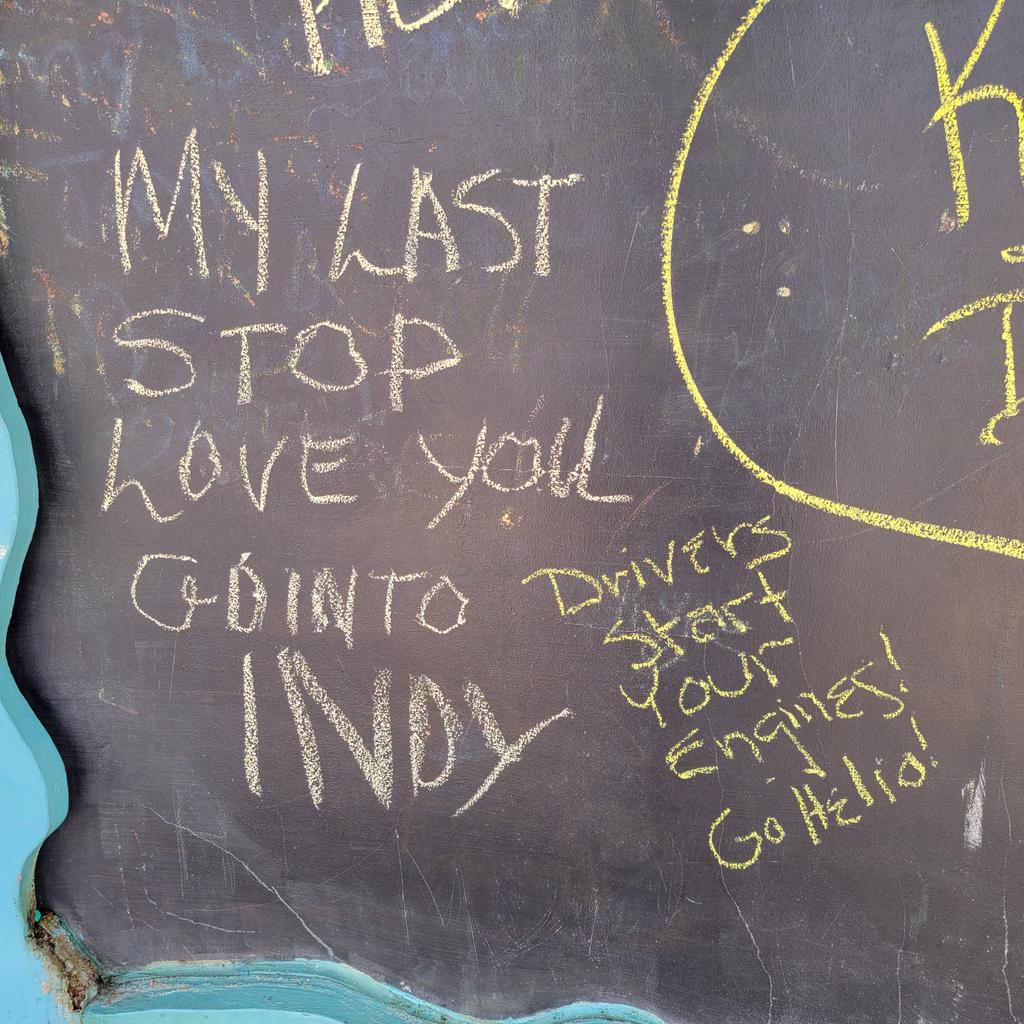 MY LAST
STOP
LOVE YOU
GOINTO
INDY
Drivers
Start
Your
Engines!
Go Hélio!
K